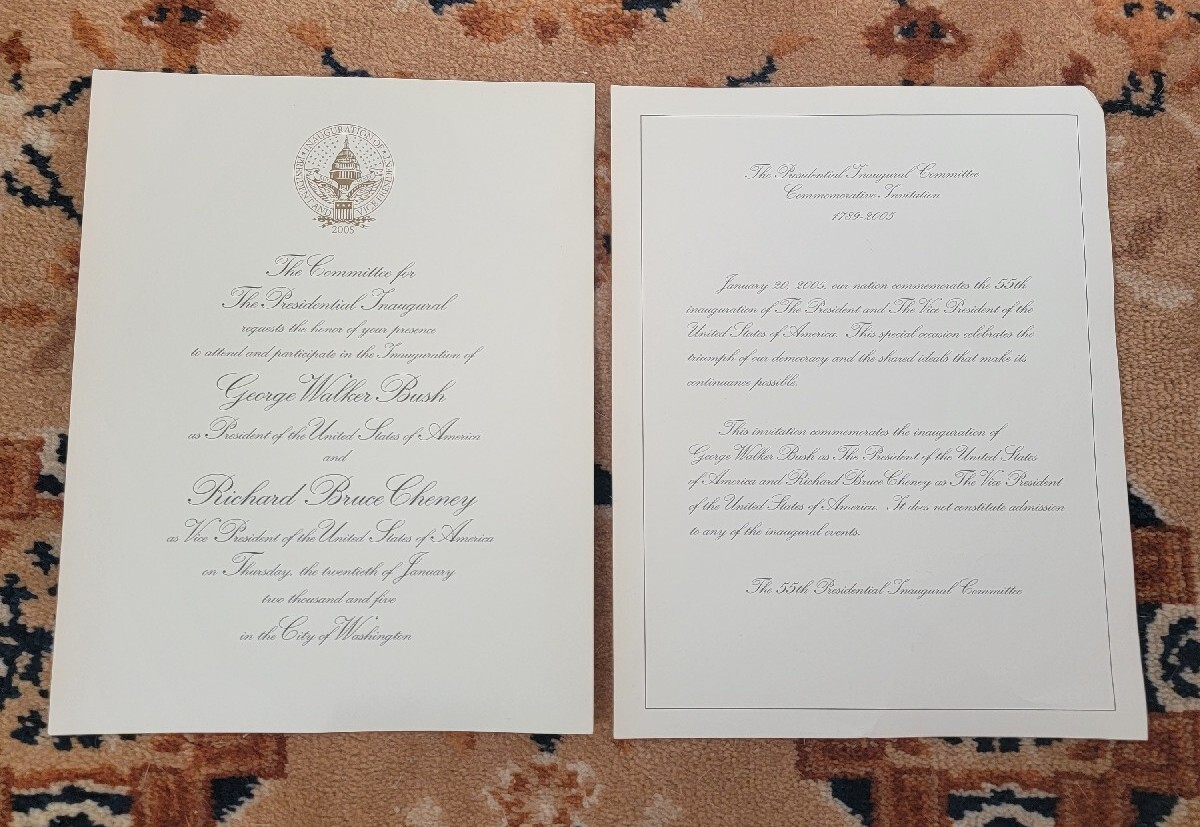 INAUGURATION OF
PRESIDENT AND VICE PRESIDENT
2005
The Committee for
The Presidential Inaugural
requests the honor of your presence
to attend and participate in the Inauguration of
George Walker Bush
as President of the United States of America
and
Richard Bruce Cheney
as Vice President of the United States of America
on Thursday, the twentieth of January
two thousand and five
in the City of Washington
The Presidential Inaugural Committee
Commemorative Invitation
1789-2005
January 20, 2005, our nation commemorates the 55th
inauguration of The President and The Vice President of the
United States of America. This special occasion celebrates the
triumph of our democracy and the shared ideals that make its
continuance possible.
This invitation commemorates the inauguration of
George Walker Bush as The President of the United States
of America and Richard Bruce Cheney as The Vice President
of the United States of America. It does not constitute admission
to any of the inaugural events.
The 55th Presidential Inaugural Committee